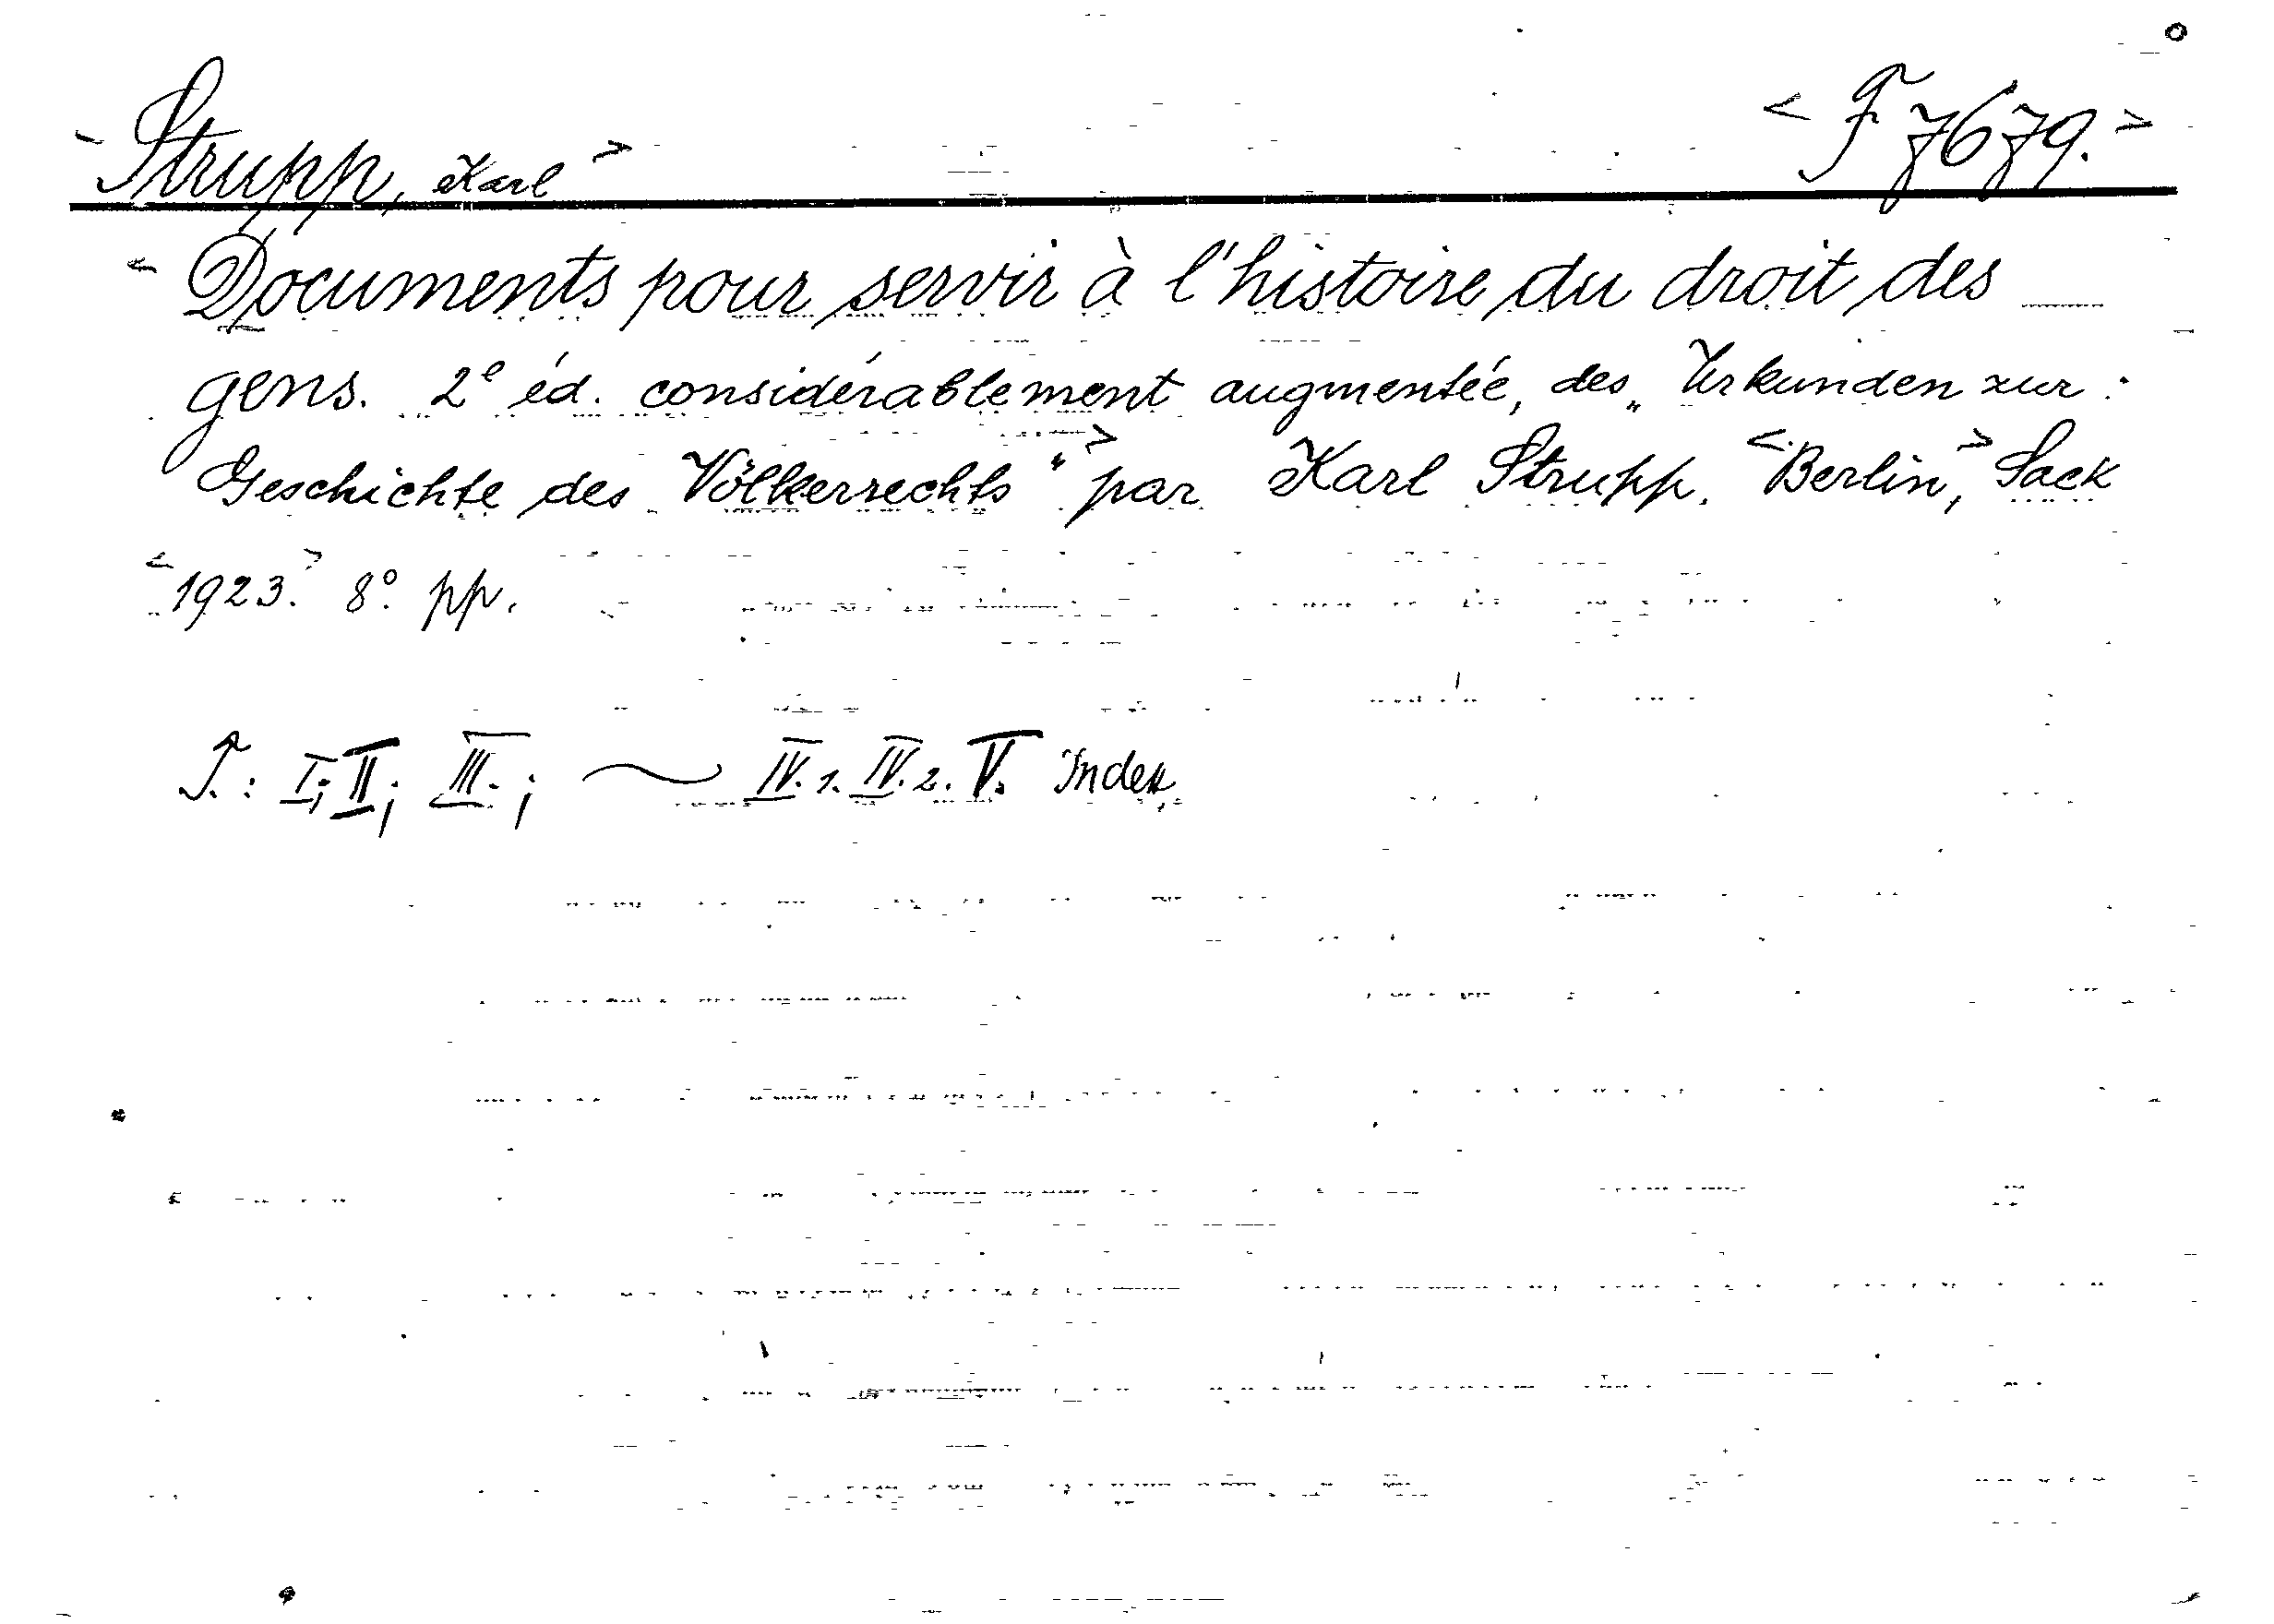 <Strupp, Karl> <F 7679.>
<Documents pour servir à l'histoire du droit des
gens. 2e éd. considérablement augmentée, des „Urkunden zur
Geschichte des Völkerrechts“> par Karl Strupp. <Berlin,> Sack
<1923.> 8°. pp.
T.: I; II; III.; IV. 1. IV. 2. V. Index